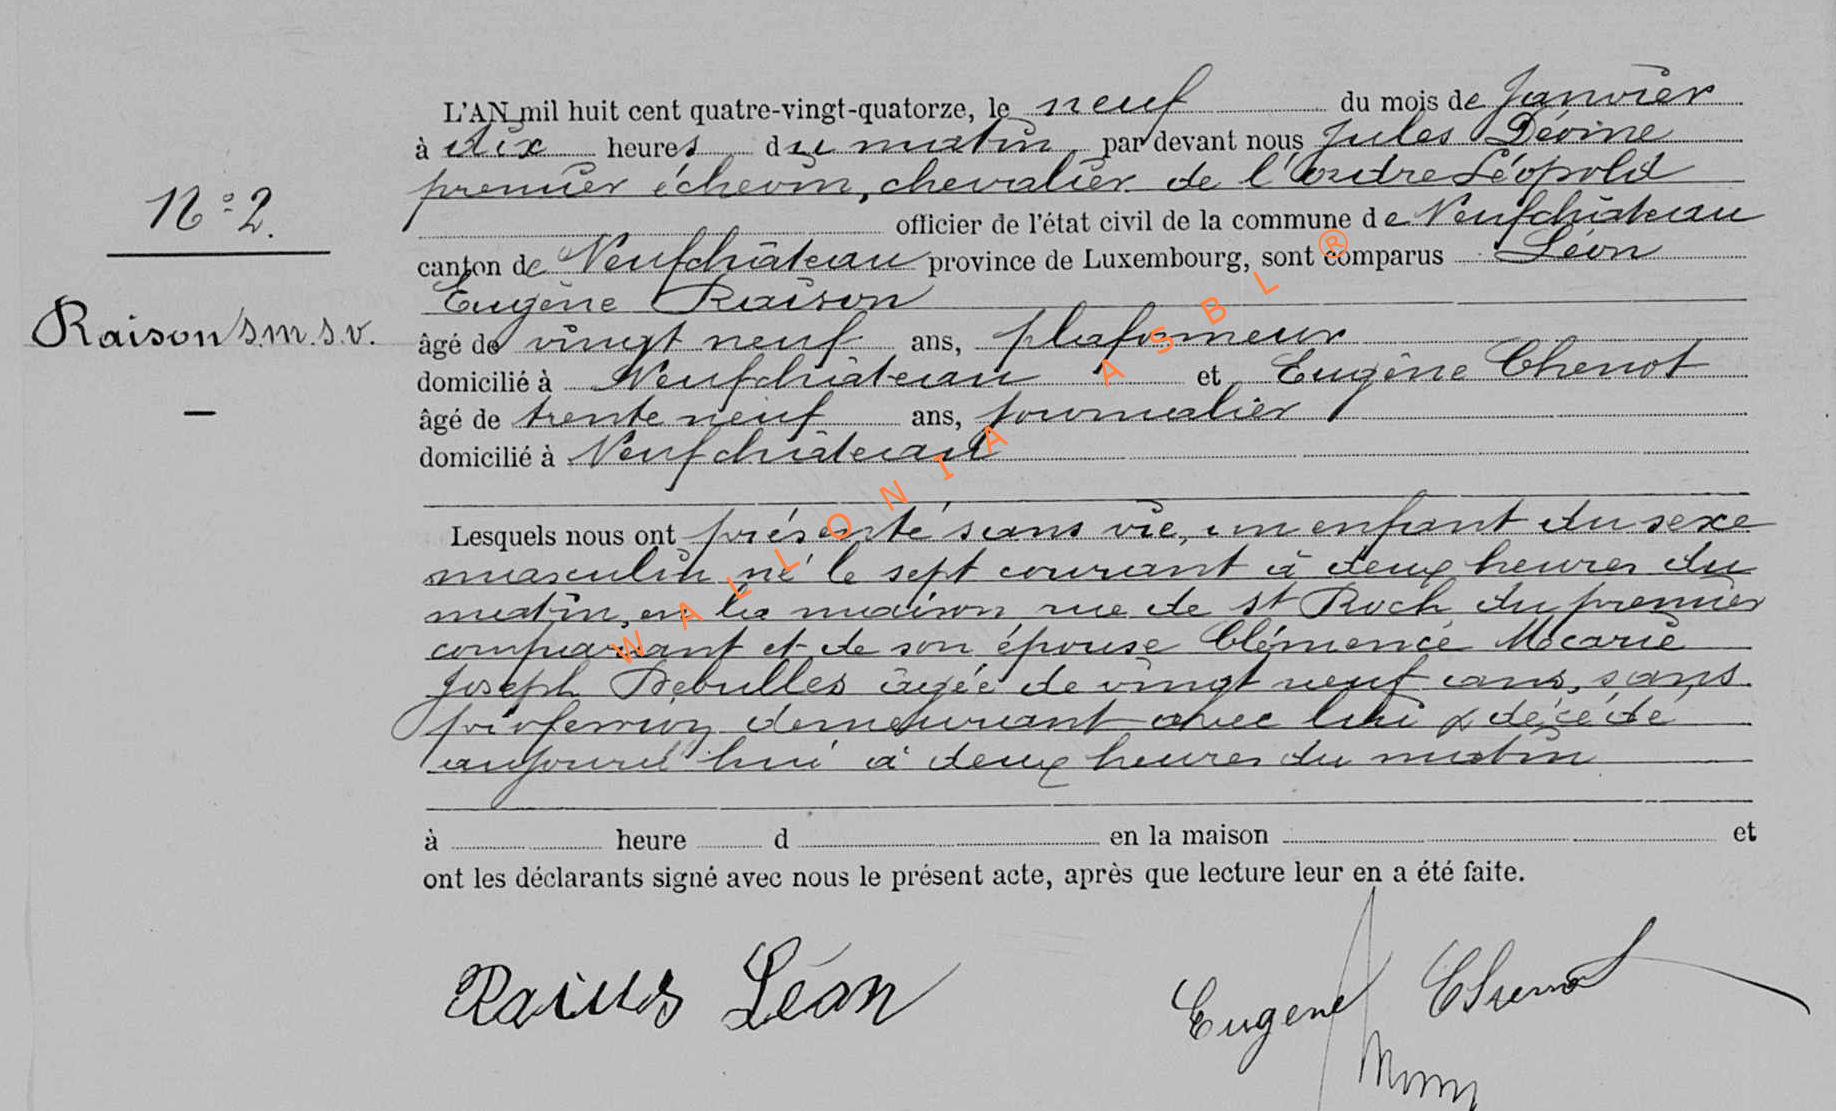 L'AN mil huit cent quatre-vingt-quatorze, le neuf du mois de Janvier
à dix heures du matin par devant nous Jules Dévine
premier échevin, chevalier de l'ordre Léopold
N° 2.
officier de l'état civil de la commune de Neufchâteau
canton de Neufchâteau province de Luxembourg, sont comparus Léon
Eugène Raison
Raison s.m.s.v.
âgé de vingt neuf ans, plafonneur
domicilié à Neufchâteau et Eugène Chenot
âgé de trente neuf ans, journalier
domicilié à Neufchâteau
Lesquels nous ont présenté sans vie, un enfant du sexe
masculin né le sept courant à deux heures du
matin, en la maison, rue de St Roch du premier
comparant et de son épouse Clémence Mocarie
Joseph Debulles âgée de vingt neuf ans, sans
profession demeurant avec lui & décédé
aujourd'hui à deux heures du matin
à heure d en la maison et
ont les déclarants signé avec nous le présent acte, après que lecture leur en a été faite.
Léon
Eugene Chenot
WALLONIA ASBL ®